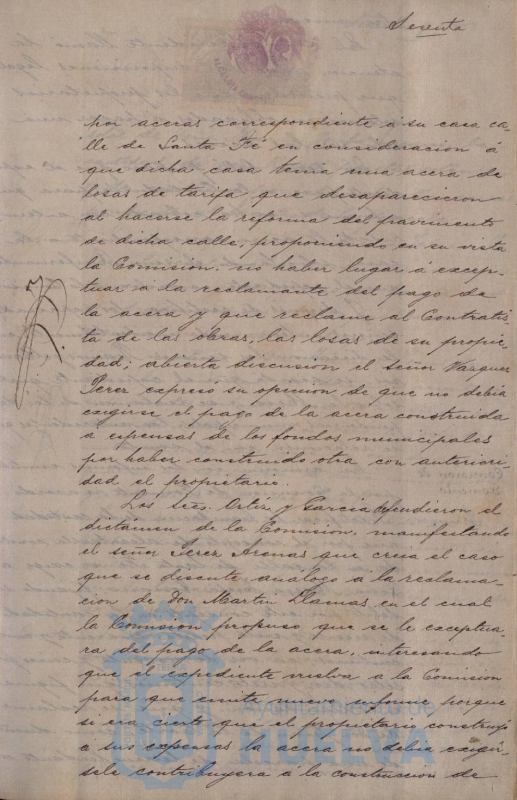 Sesenta
por aceras correspondiente á su casa ca-
lle de Santa Fé en consideracion á
que dicha casa tenia una acera de
losas de tarifa que desaparecieron
al hacerse la reforma del pavimento
de dicha calle, proponiendo en su vista
la Comision. no haber lugar á excep-
tuar á la reclamante del pago de
la acera y que reclame al Contratis-
ta de las obras, las losas de su propie-
dad; abierta discusion el Señor Vazquez
Perez expresó su opinion de que no debia
exigirse el pago de la acera construida
a expensas de los fondos municipales
por haber construido otra con anteriori-
dad el propietario.
Los Sres. Ortiz y Garcia defendieron el
dictámen de la Comision, manifestando
el señor Perez Arenas que creia el caso
que se discute análogo á la reclama-
cion de Don Martin Llamas en el cual
la Comision propuso que se le exceptua-
ra del pago de la acera, interesando
que el expediente vuelva á la Comision
para que emita nuevo informe porque
si era cierto que el propietario construyó
a sus expensas la acera no debia exigir-
sele contribuyera á la construccion de
Ayuntamiento de
HUELVA